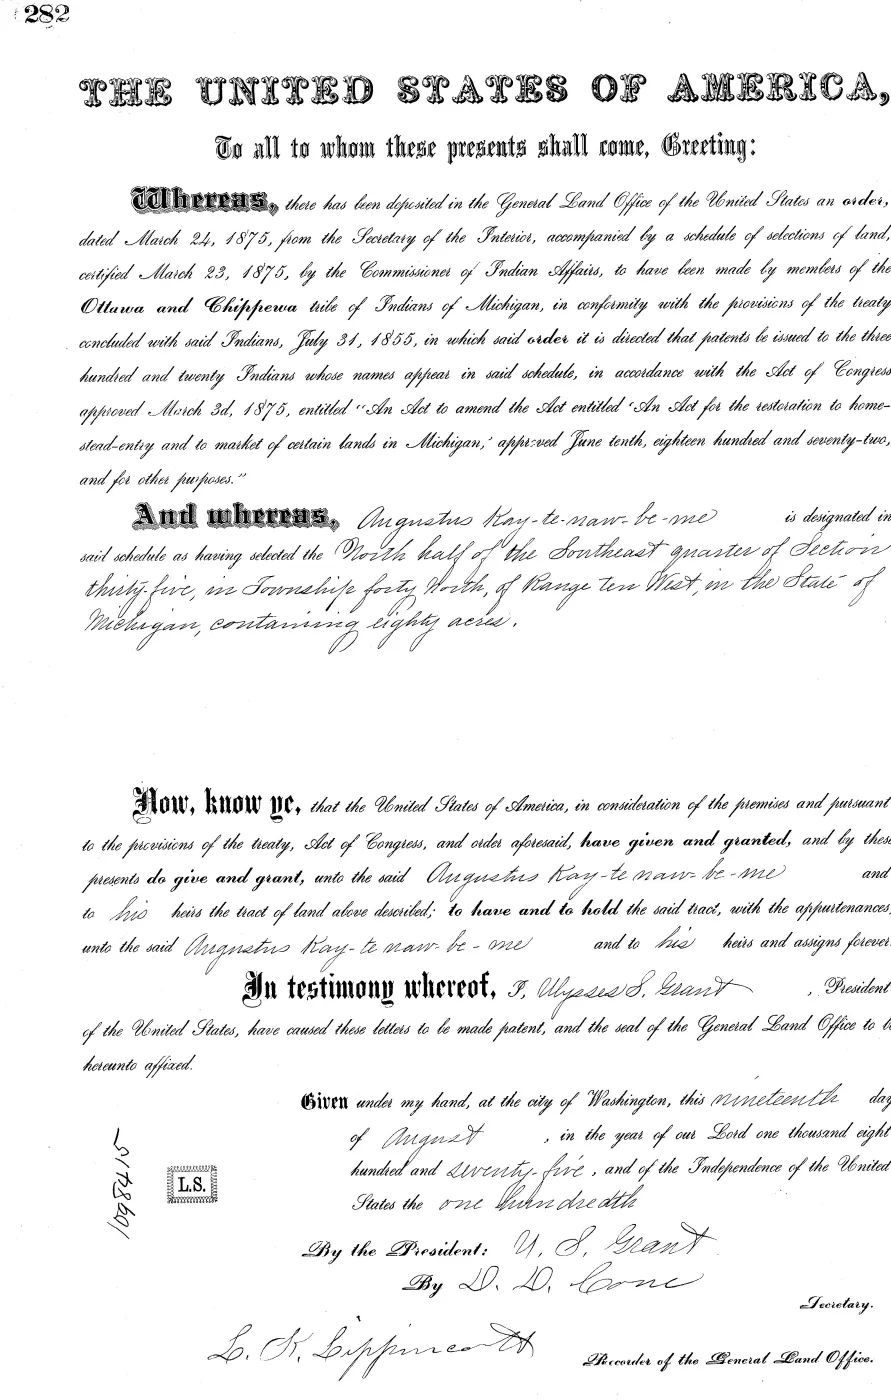 282
THE UNITED STATES OF AMERICA,
To all to whom these presents shall come, Greeting:
Whereas, there has been deposited in the General Land Office of the United States an order,
dated March 24, 1875, from the Secretary of the Interior, accompanied by a schedule of selections of land,
certified March 23, 1875, by the Commissioner of Indian Affairs, to have been made by members of the
Ottawa and Chippewa tribe of Indians of Michigan, in conformity with the provisions of the treaty
concluded with said Indians, July 31, 1855, in which said order it is directed that patents be issued to the three
hundred and twenty Indians whose names appear in said schedule, in accordance with the Act of Congress
approved March 3d, 1875, entitled "An Act to amend the Act entitled 'An Act for the restoration to home-
stead-entry and to market of certain lands in Michigan,' approved June tenth, eighteen hundred and seventy-two,
and for other purposes."
And whereas, Augustus Kay-te-naw-be-me is designated in
said schedule as having selected the North half of the Southeast quarter of Section
thirty-five, in Township forty North, of Range ten West, in the State of
Michigan, containing eighty acres.
Now, know ye, that the United States of America, in consideration of the premises and pursuant
to the provisions of the treaty, Act of Congress, and order aforesaid, have given and granted, and by these
presents do give and grant, unto the said Augustus Kay-te naw-be-me and
to his heirs the tract of land above described; to have and to hold the said tract, with the appurtenances,
unto the said Augustus Kay-te naw-be-me and to his heirs and assigns forever.
In testimony whereof, I, Ulysses S. Grant, President
of the United States, have caused these letters to be made patent, and the seal of the General Land Office to b
hereunto affixed.
Given under my hand, at the city of Washington, this nineteenth day
of August, in the year of our Lord one thousand eight
hundred and seventy-five, and of the Independence of the United
States the one hundredth
1098415
L.S.
By the President: U. S. Grant
By D. D. Cone
Secretary.
L. K. Lippincott
Recorder of the General Land Office.